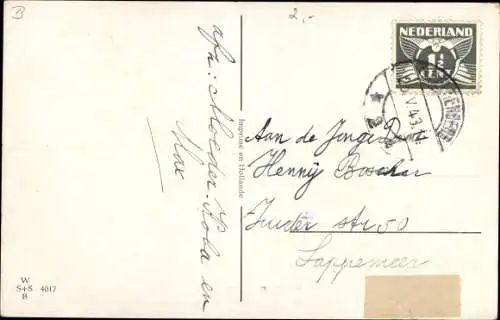 B
2,-
NEDERLAND
1½
CENT
V.43
afz: Moeder. Kola en
Max
Imprimé en Hollande
Aan de Jonge Dame
Henny Boscher
Zuider str 50
Sappemeer
W
S+S 4017
B